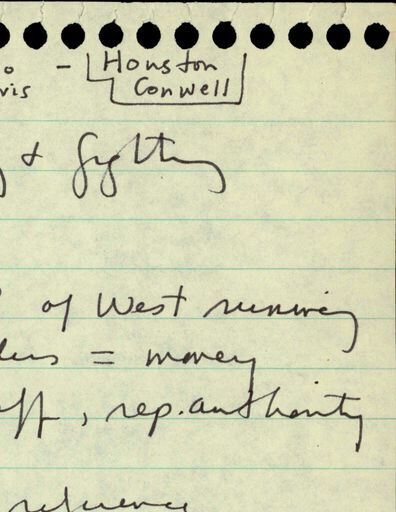 o - Houston
vis Conwell
y & fighting
of West running
ders = money
off, rep. authority
reference